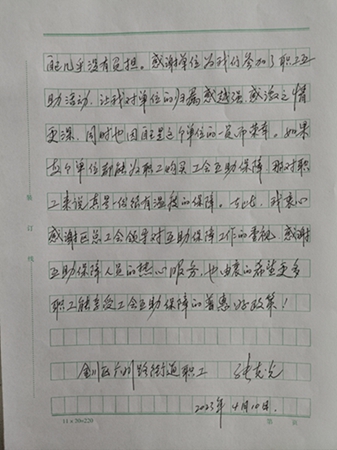 没有负担。感谢单位为我们参加了职工互
助活动，让我对单位的归属感越强，感激之情
更深，同时也因自己是这个单位的一员而荣幸。如果
每个单位都能为职工购买工会互助保障，那对职
工来说真是一份很有温度的保障。在此，我衷心
感谢区总工会领导对互助保障工作的重视，感谢
互助保障人员的热心服务，也由衷的希望更多
职工能享受工会互助保障的普惠好政策！
街道职工
2023年4月10日.
装
订
线
11×20=220
第 页